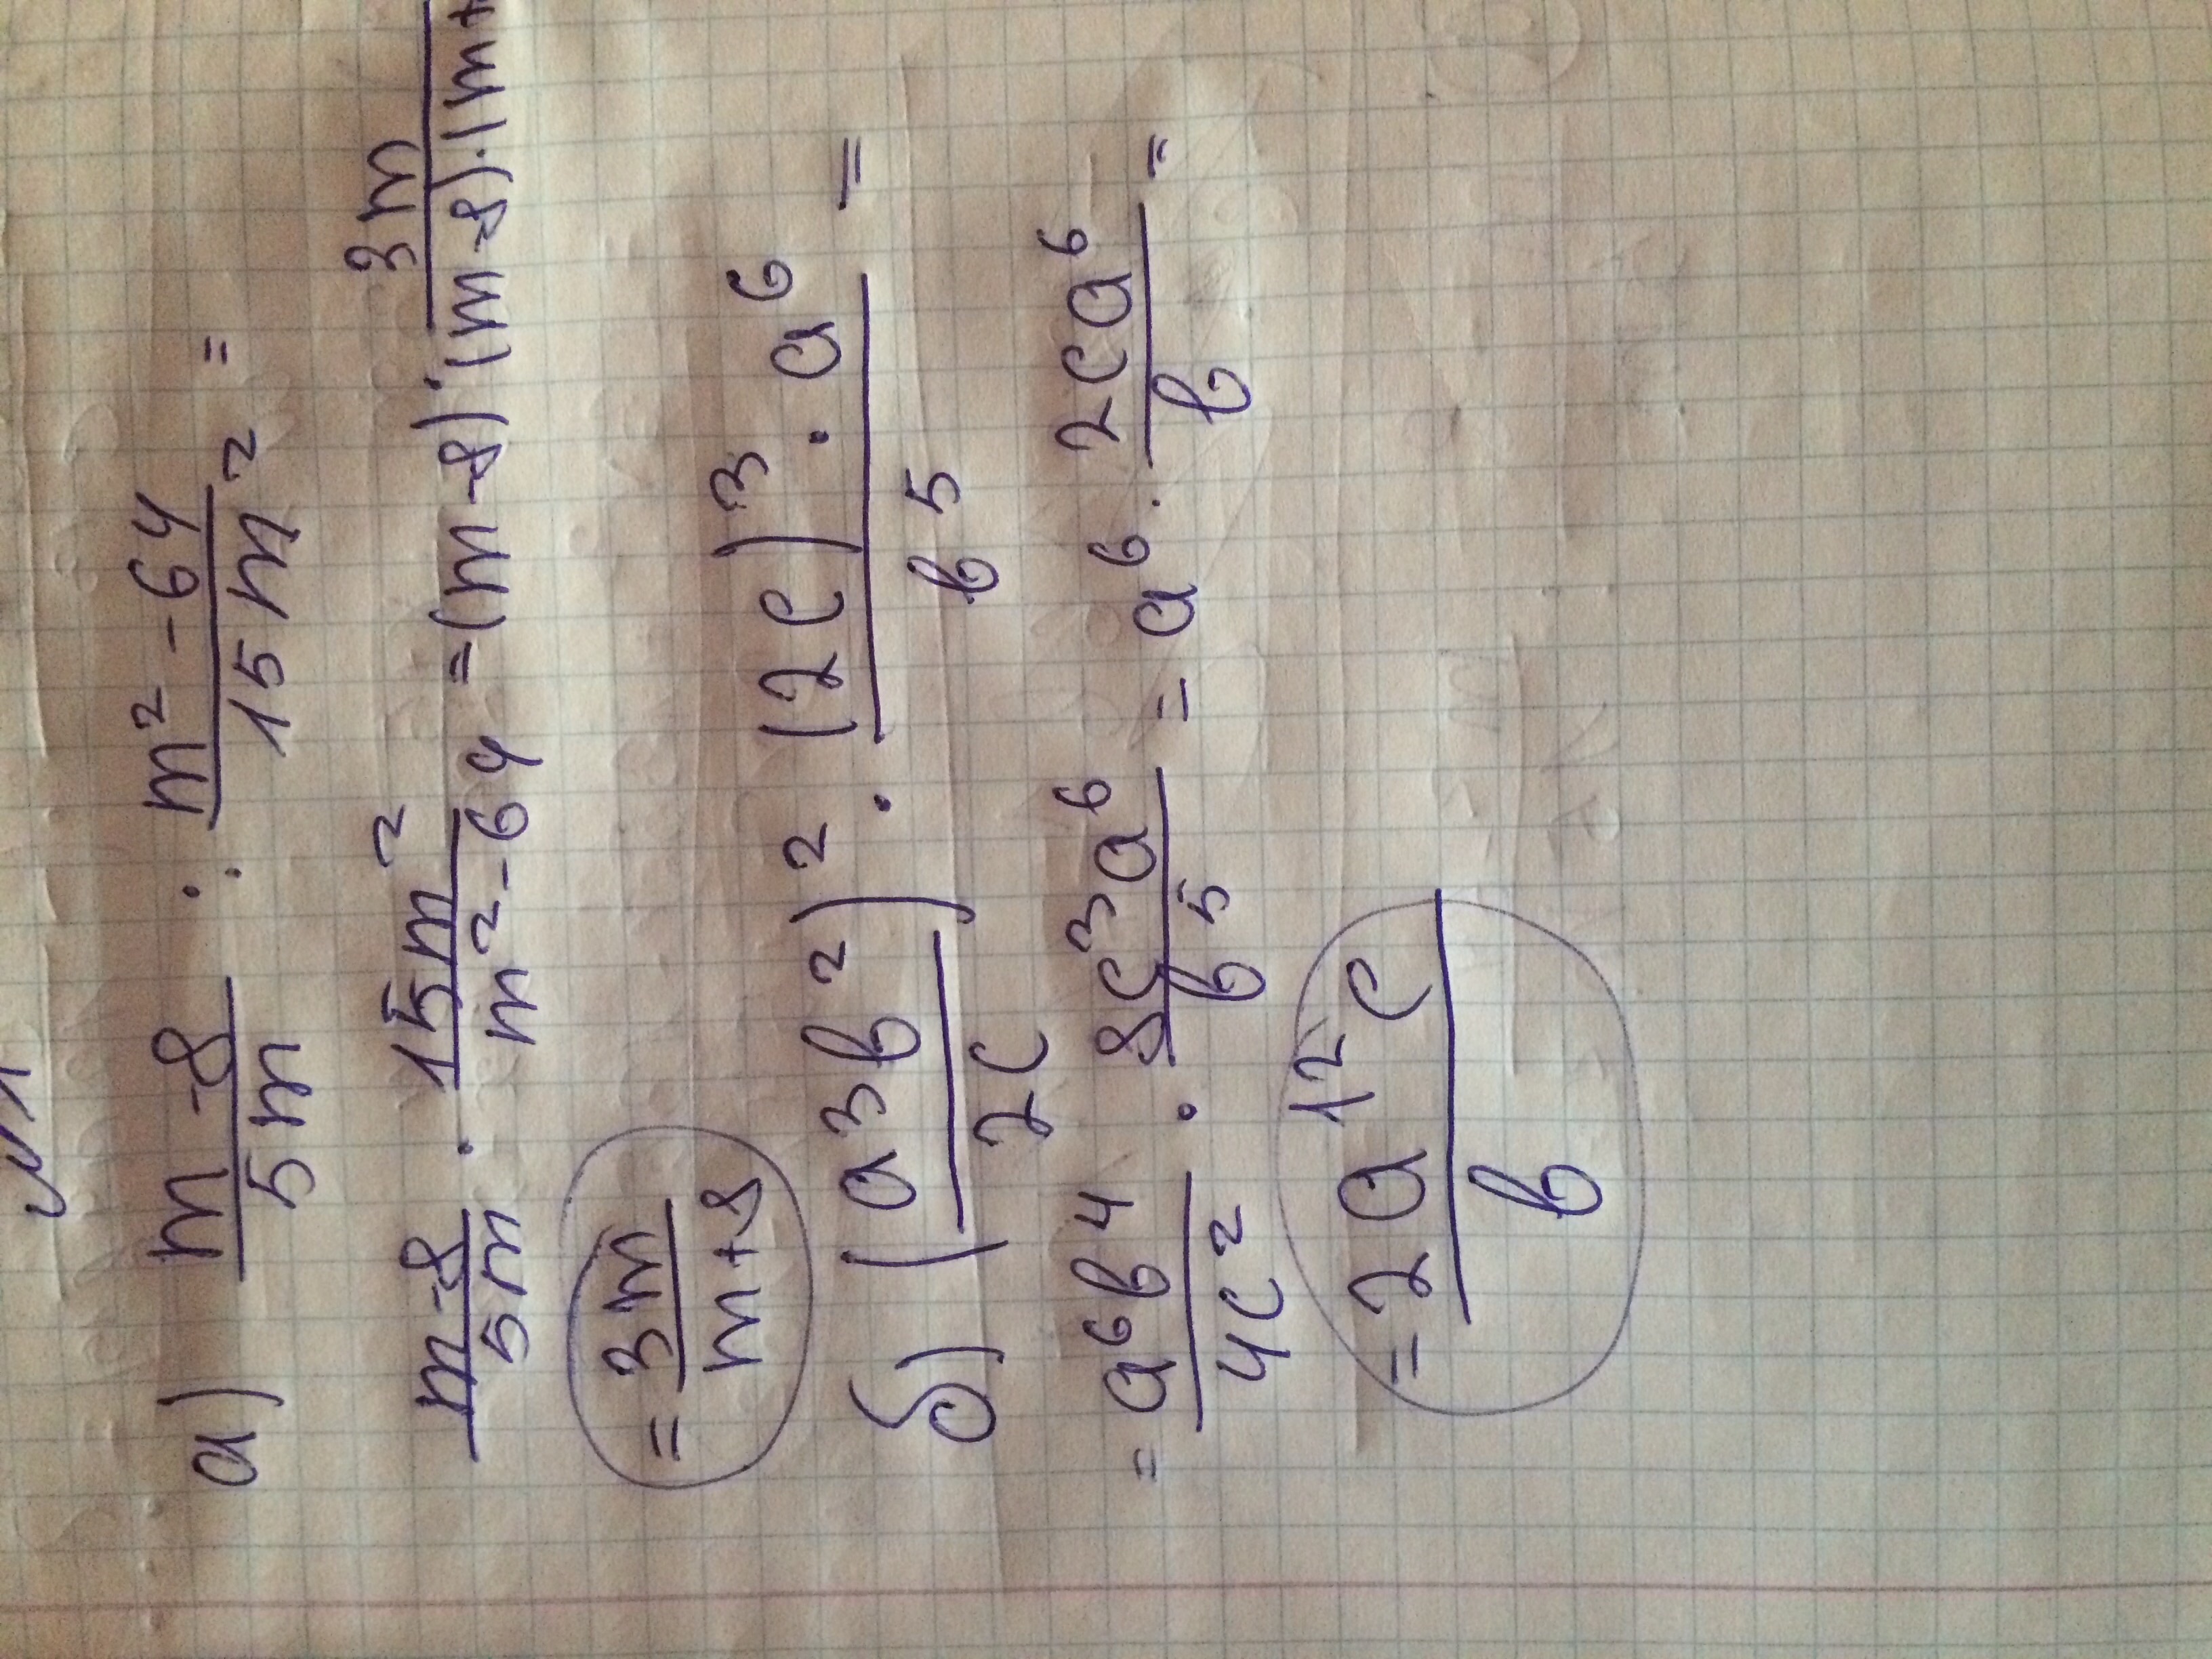 а) (m-8)/(5m) : (m²-64)/(15m²) =
(m-8)/(5m) · (15m²)/(m²-64) = (m-8) · (3m)/((m-8)·(m+
= (3m)/(m+8)
б) ((a³b²)/(2c))² · ((2c)³ · a⁶)/(b⁵) =
= (a⁶b⁴)/(4c²) · (8c³a⁶)/(b⁵) = a⁶ · (2ca⁶)/(b) =
= (2a¹²c)/(b)